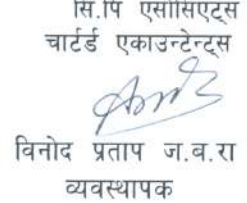 सि.पि एसोसिएट्स
चार्टर्ड एकाउन्टेन्ट्स
विनोद प्रताप ज.ब.रा
व्यवस्थापक